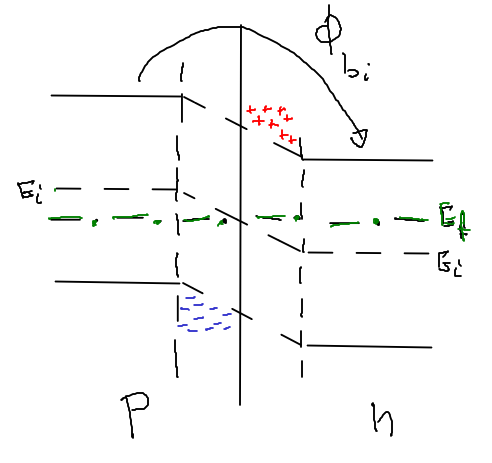 ϕbi
Ei
Ef
Ei
P
n